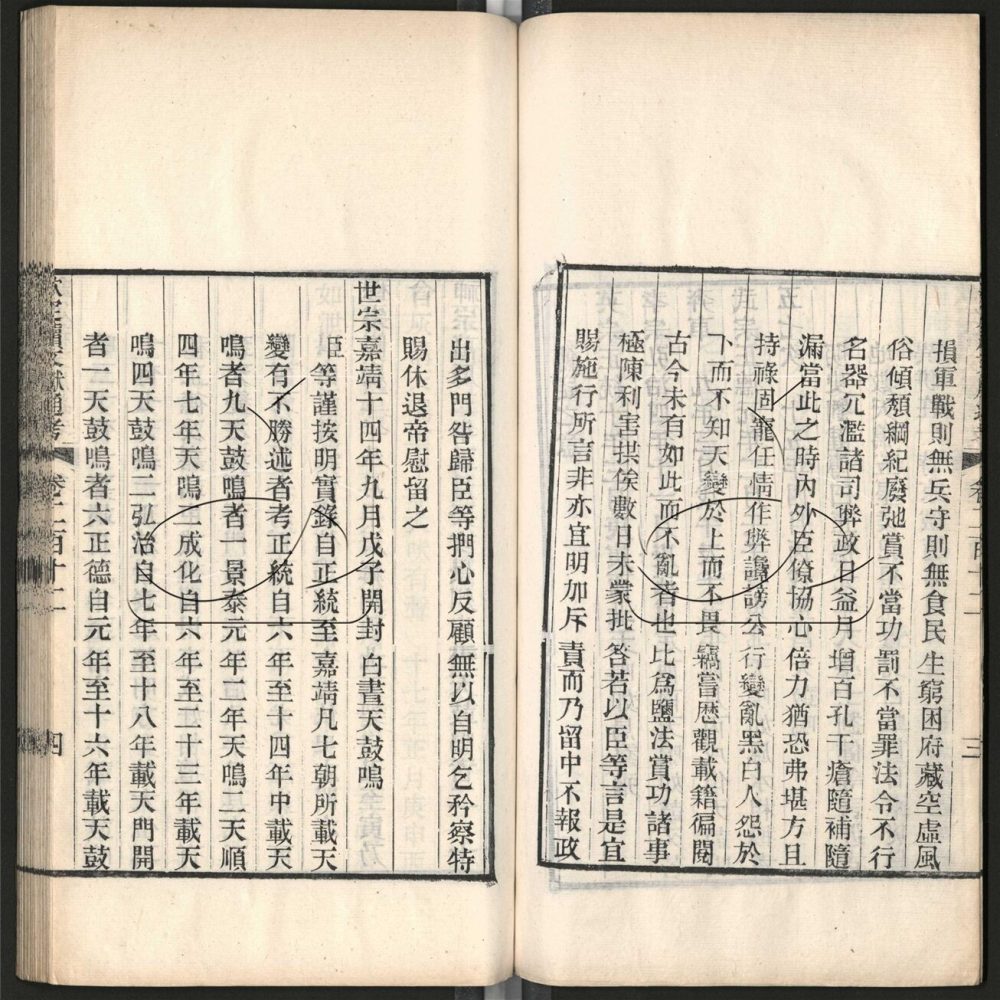 損軍戰則無兵守則無食民生窮困府藏空虛風
俗傾頽綱紀廢弛賞不當功罰不當罪法令不行
名器冗濫諸司弊政日益月增百孔千瘡隨補隨
漏當此之時內外臣僚協心倍力猶恐弗堪方且
持祿固寵任情作弊讟謗公行變亂黑白人怨於
下而不知天變於上而不畏竊嘗歷觀載籍徧閱
古今未有如此而不亂者也比爲鹽法賞功諸事
極陳利害拱俟數日未蒙批答若以臣等言是宜
賜施行所言非亦宜明加斥責而乃留中不報政
三
出多門咎歸臣等捫心反顧無以自明乞矜察特
賜休退帝慰留之
世宗嘉靖十四年九月戊子開封白晝天鼓鳴
臣等謹按明實錄自正統至嘉靖凡七朝所載天
變有不勝述者考正統自六年至十四年中載天
鳴者九天鼓鳴者一景泰元年二年天鳴二天順
四年七年天鳴二成化自六年至二十三年載天
鳴四天鼓鳴二弘治自七年至十八年載天門開
者一天鼓鳴者六正德自元年至十六年載天鼓
欽定續文獻通考 卷二百十二 四